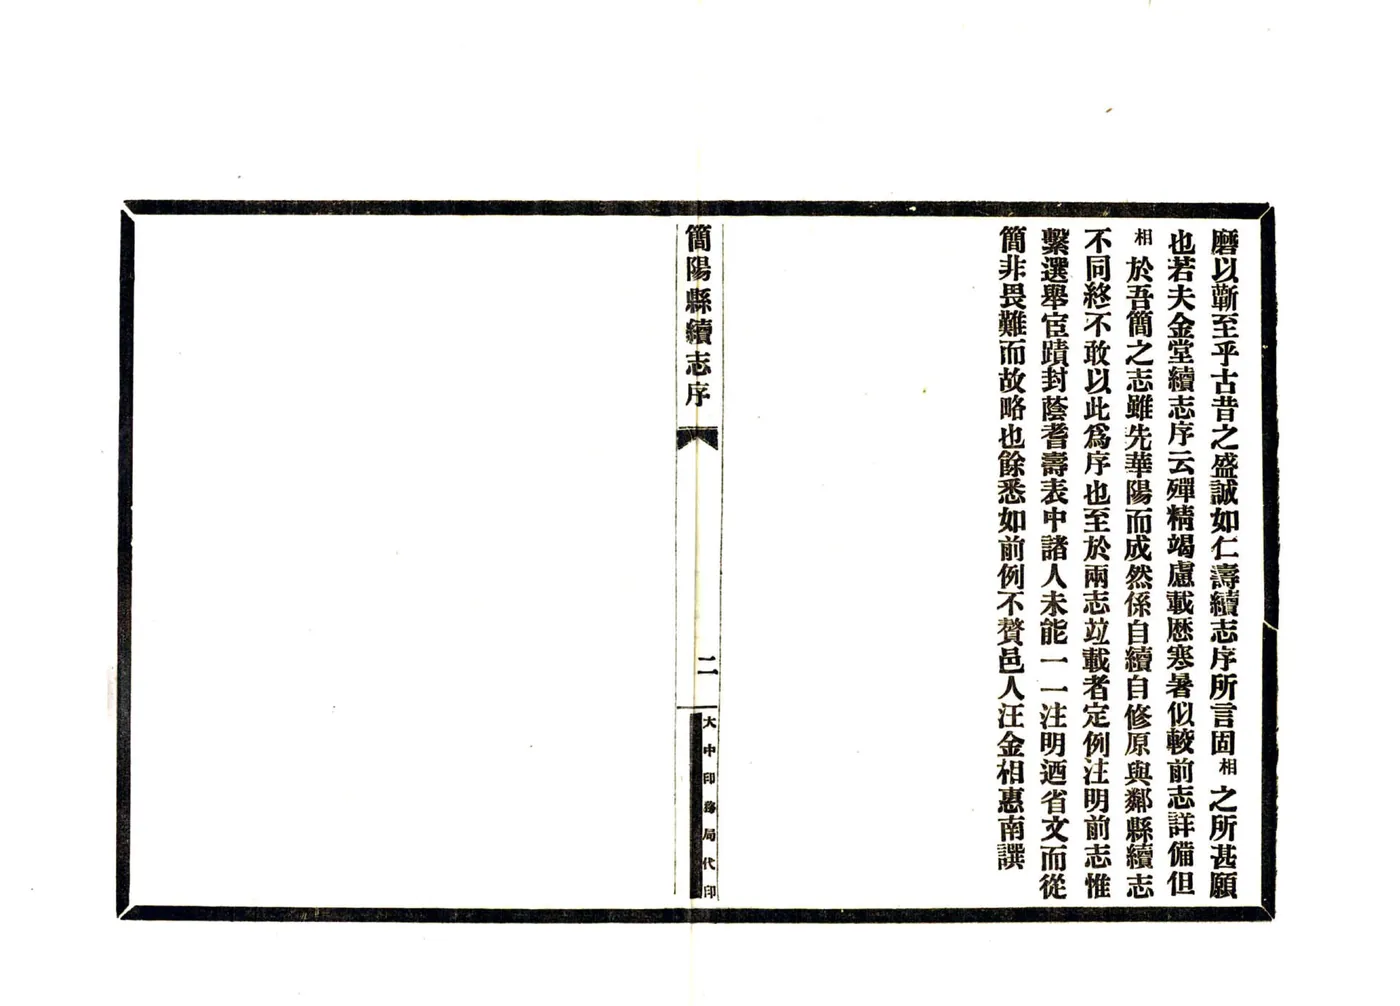 磨以蘄至乎古昔之盛誠如仁壽續志序所言固相之所甚願
也若夫金堂續志序云殫精竭慮載歷寒暑似較前志詳備但
相於吾簡之志雖先華陽而成然係自續自修原與鄰縣續志
不同終不敢以此爲序也至於兩志竝載者定例注明前志惟
繫選舉宦蹟封蔭耆壽表中諸人未能一一注明迺省文而從
簡非畏難而故略也餘悉如前例不贅邑人汪金相惠南譔
簡陽縣續志序
二
大中印務局代印